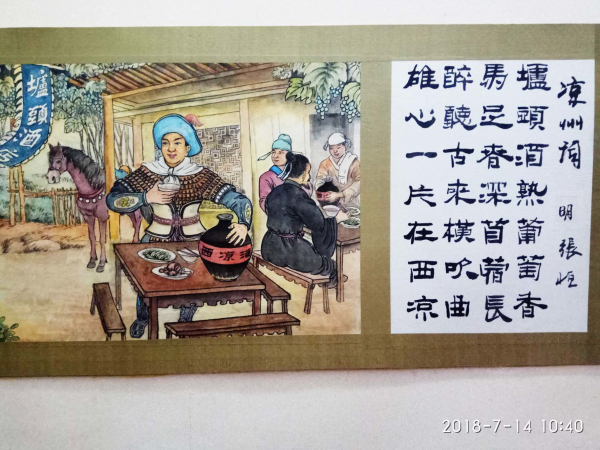 壚頭酒
西凉酒
凉州詞 明 張恒
壚頭酒熟葡萄香
馬足春深苜蓿長
醉聽古來橫吹曲
雄心一片在西凉
2018-7-14 10:40